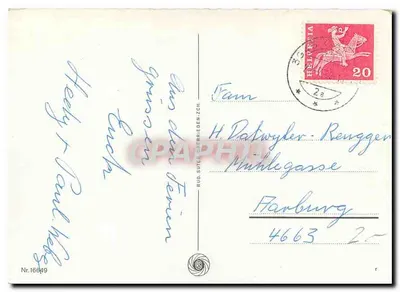 Aus den Ferien
grüssen
Euch
Hedy + Paul
Fam
H. Dätwyler-Rengger
Mühlegasse
Aarburg
4663
2.-
HELVETIA
20
2a
Nr. 16649
CARTORUM